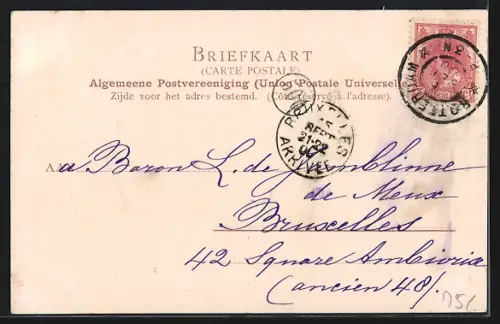 BRIEFKAART
(CARTE POSTALE)
Algemeene Postvereeniging (Union Postale Universelle)
Zijde voor het adres bestemd. (Côté réservé à l'adresse).
ROTTERDAM
BRUXELLES
15
SEPT
21-22
ARRIVÉE
a Baron L. de Jamblinne
de Meux
Bruxelles
42 Square Ambiorix
(ancien 48).